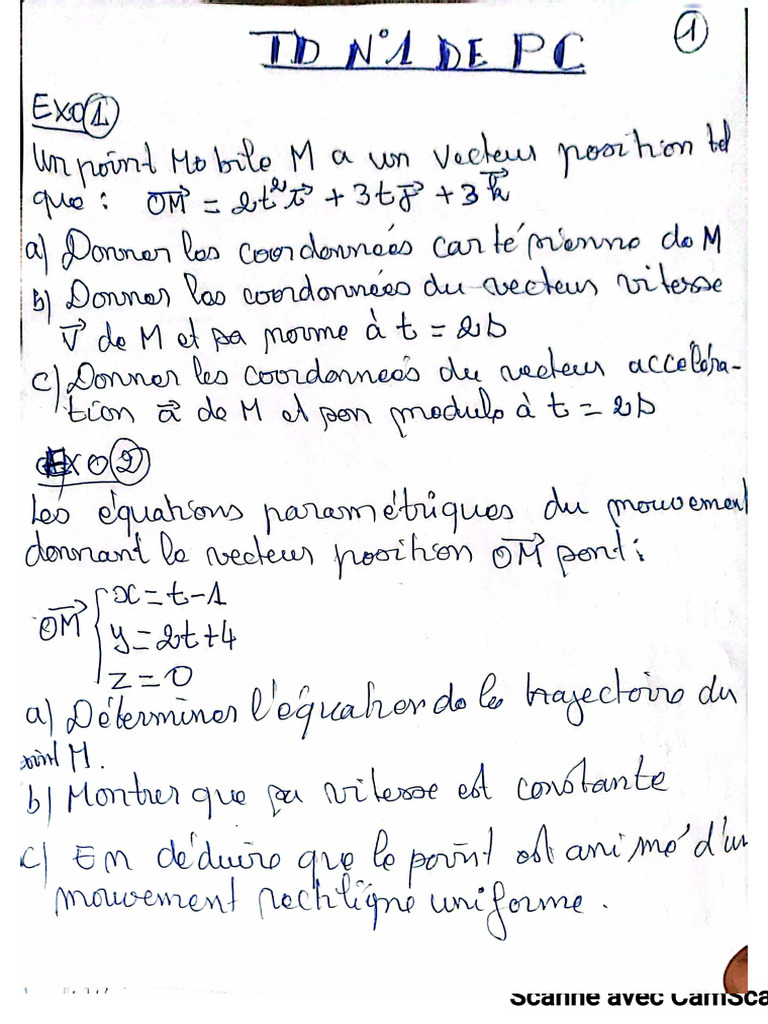 TD N°1 DE PC
①
Exo ①
Un point Mobile M a un vecteur position tel
que : OM⃗ = 2t²i⃗ + 3tj⃗ + 3k⃗
a) Donner les coordonnées cartésienne de M
b) Donner les coordonnées du vecteur vitesse
V⃗ de M et sa norme à t = 2s
c) Donner les coordonneés du vecteur accéléra-
tion a⃗ de M et son module à t = 2s
Exo ②
Les équations paramétriques du mouvement
donnant le vecteur position OM⃗ sont :
OM⃗ { x = t - 1
y = 2t + 4
z = 0
a) Déterminer l'équation de la trajectoire du
oint M.
b) Montrer que sa vitesse est constante
c) En déduire que le point est animé d'un
mouvement rectiligne uniforme.
Scanné avec CamSca